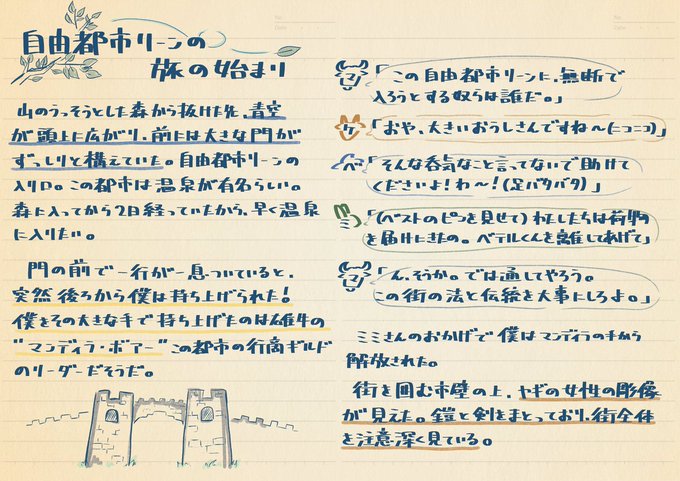 自由都市リーンの
旅の始まり
山のうっそうとした森から抜けた先、青空
が頭上に広がり、前には大きな門が
ずっしりと構えていた。自由都市リーンの
入り口。この都市は温泉が有名らしい。
森に入ってから2日経っていたから、早く温泉
に入りたい。
門の前で一行が一息ついていると、
突然後ろから僕は持ち上げられた!
僕をその大きな手で持ち上げたのは雄牛の
"マンディラ・ボアー"この都市の行商ギルド
のリーダーだそうだ。
No.
Date
No.
Date
マ「この自由都市リーンに、無断で
入ろうとする奴らは誰だ。」
ケ「おや、大きいおうしさんですね〜(ニコニコ)」
ベ「そんな呑気なこと言ってないで助けて
くださいよ!わ〜!(足バタバタ)」
ミ「(ベストのピンを見せて)わたしたちは荷物
を届けにきたの。ベテルくんを離してあげて」
マ「ん、そうか。では通してやろう。
この街の法と伝統を大事にしろよ。」
ミミさんのおかげで僕はマンディラの手から
解放された。
街を囲む市壁の上、ヤギの女性の彫像
が見えた。鎧と剣をまとっており、街全体
を注意深く見ている。